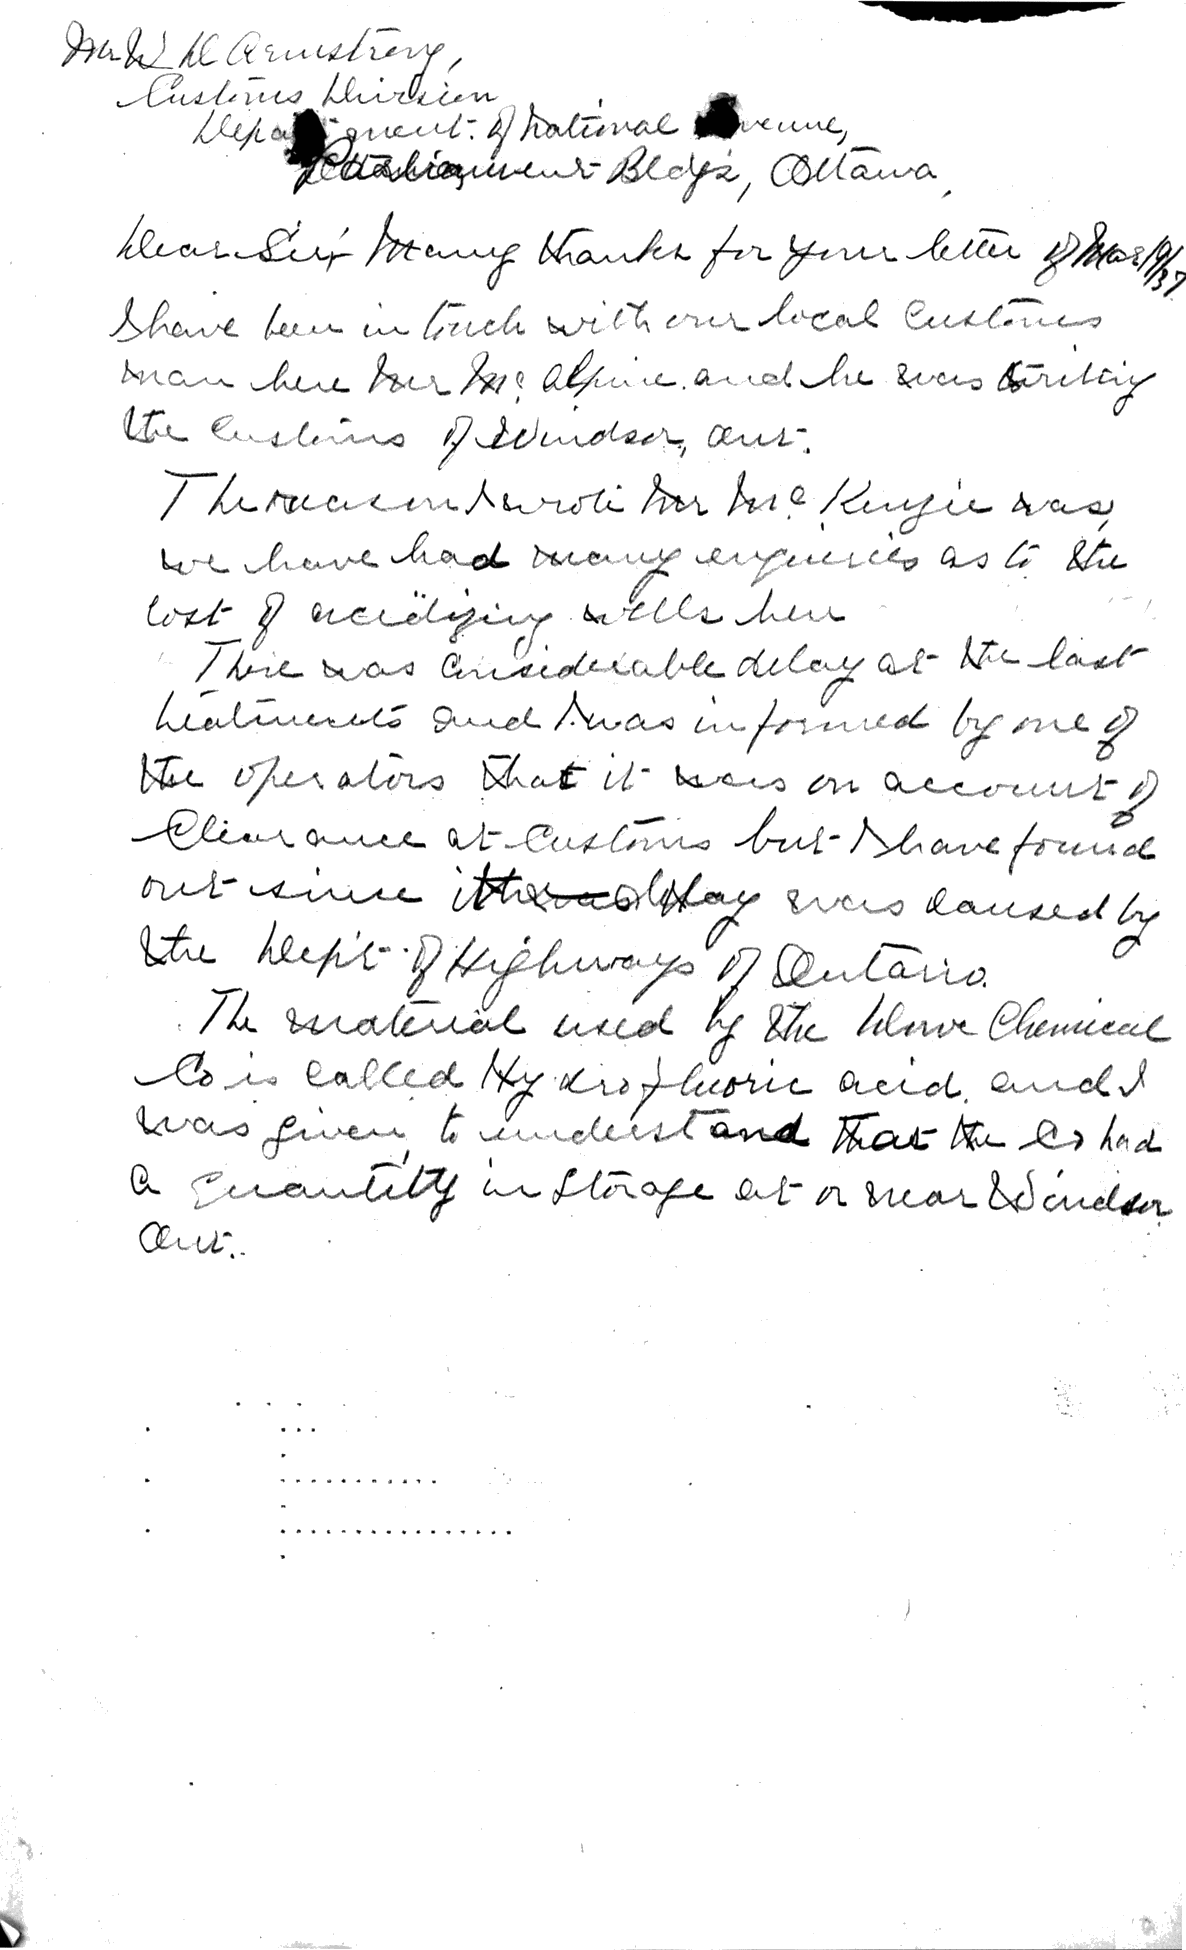 Mr W D Armstrong,
Customs Division
Department of National Revenue,
Parliament Bldgs, Ottawa,
Dear Sir: Many thanks for your letter of Mar 19/37.
I have been in touch with our local Customs
man here Mr Mc Alpine and he was writing
the Customs of Windsor, Ont.
The reason I wrote Mr Mc Kenzie was,
we have had many enquiries as to the
cost of acidizing wells here
There was considerable delay at the last
treatments and I was informed by one of
the operators that it was on account of
Clearance at Customs but I have found
out since the delay was caused by
the Dep't of Highways of Ontario.
The material used by the Dow Chemical
Co is called Hydrofluoric acid and I
was given to understand that the Co had
a quantity in storage at or near Windsor
Ont.